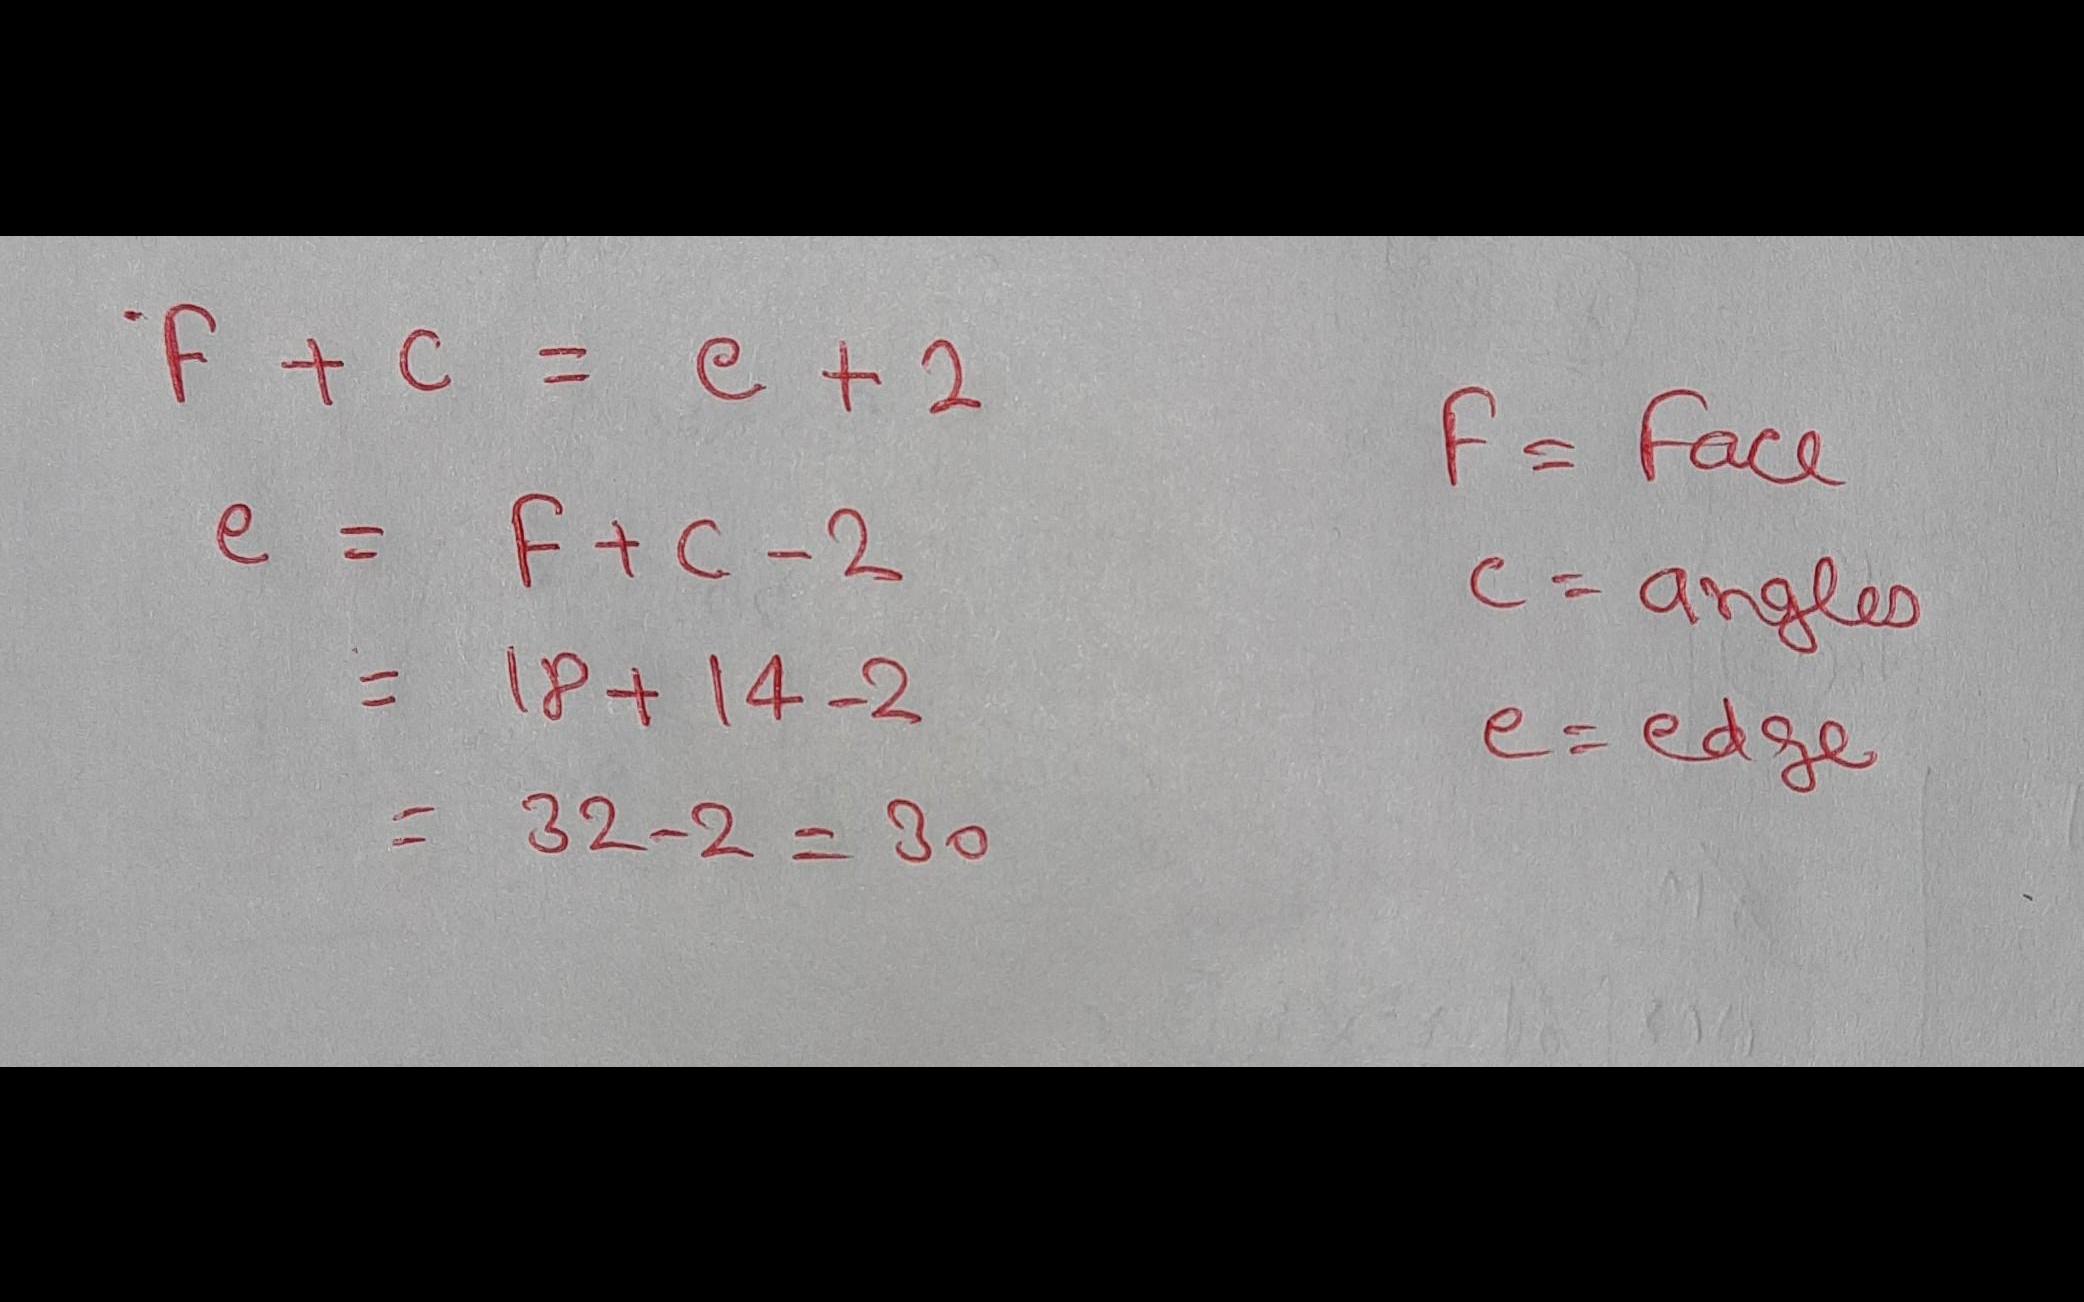 F + C = e + 2
e = F + C - 2
= 18 + 14 - 2
= 32 - 2 = 30
F = Face
C = angles
e = edge